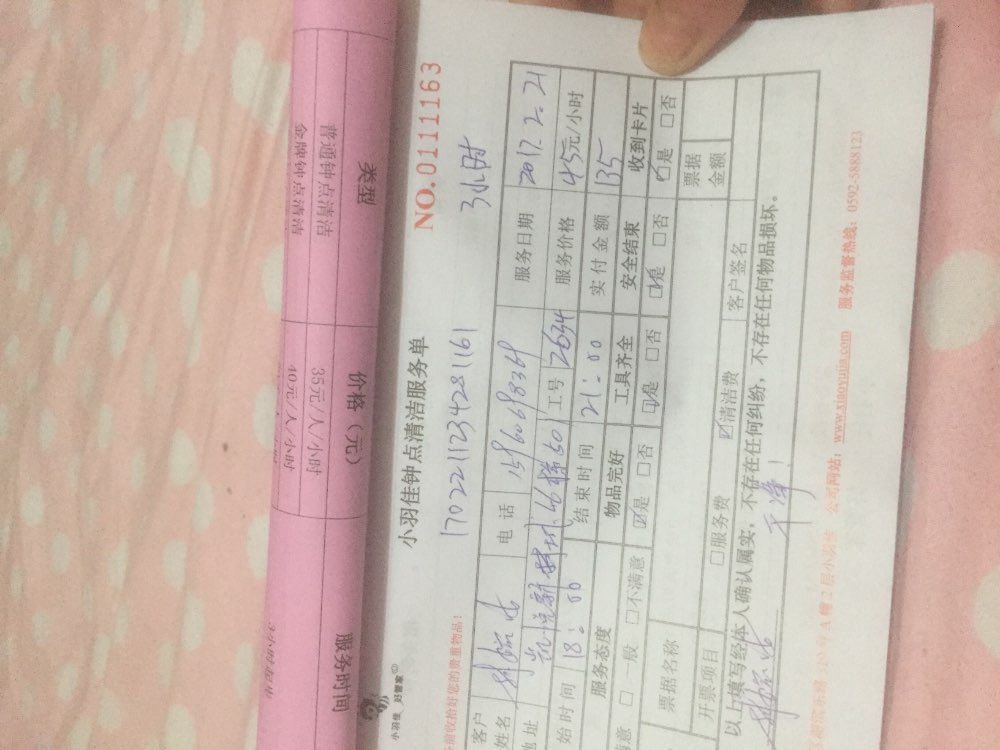 类型
价格（元）
服务时间
普通钟点清洁
35元/人/小时
金牌钟点清洁
40元/人/小时
小羽佳 好管家
小羽佳钟点清洁服务单
NO.0111163
1702211234281161
3小时
收拾好您的贵重物品！
客户姓名
电话
服务日期 2017.2.21
地址
46栋50
工号 2634
服务价格 45元/小时
始时间 18:00
结束时间 21:00
实付金额 135
服务态度
物品完好
工具齐全
安全结束
收到卡片
满意 □一般 □不满意 ☑是 □否 ☑是 □否 ☑是 □否 ☑是 □否
票据名称
票据金额
开票项目 □服务费 ☑清洁费
以上填写经体人确认属实，不存在任何纠纷，不存在任何物品损坏。
客户签名
干净！
公司网站：www.xiaoyujia.com
服务监督热线：0592-5888123